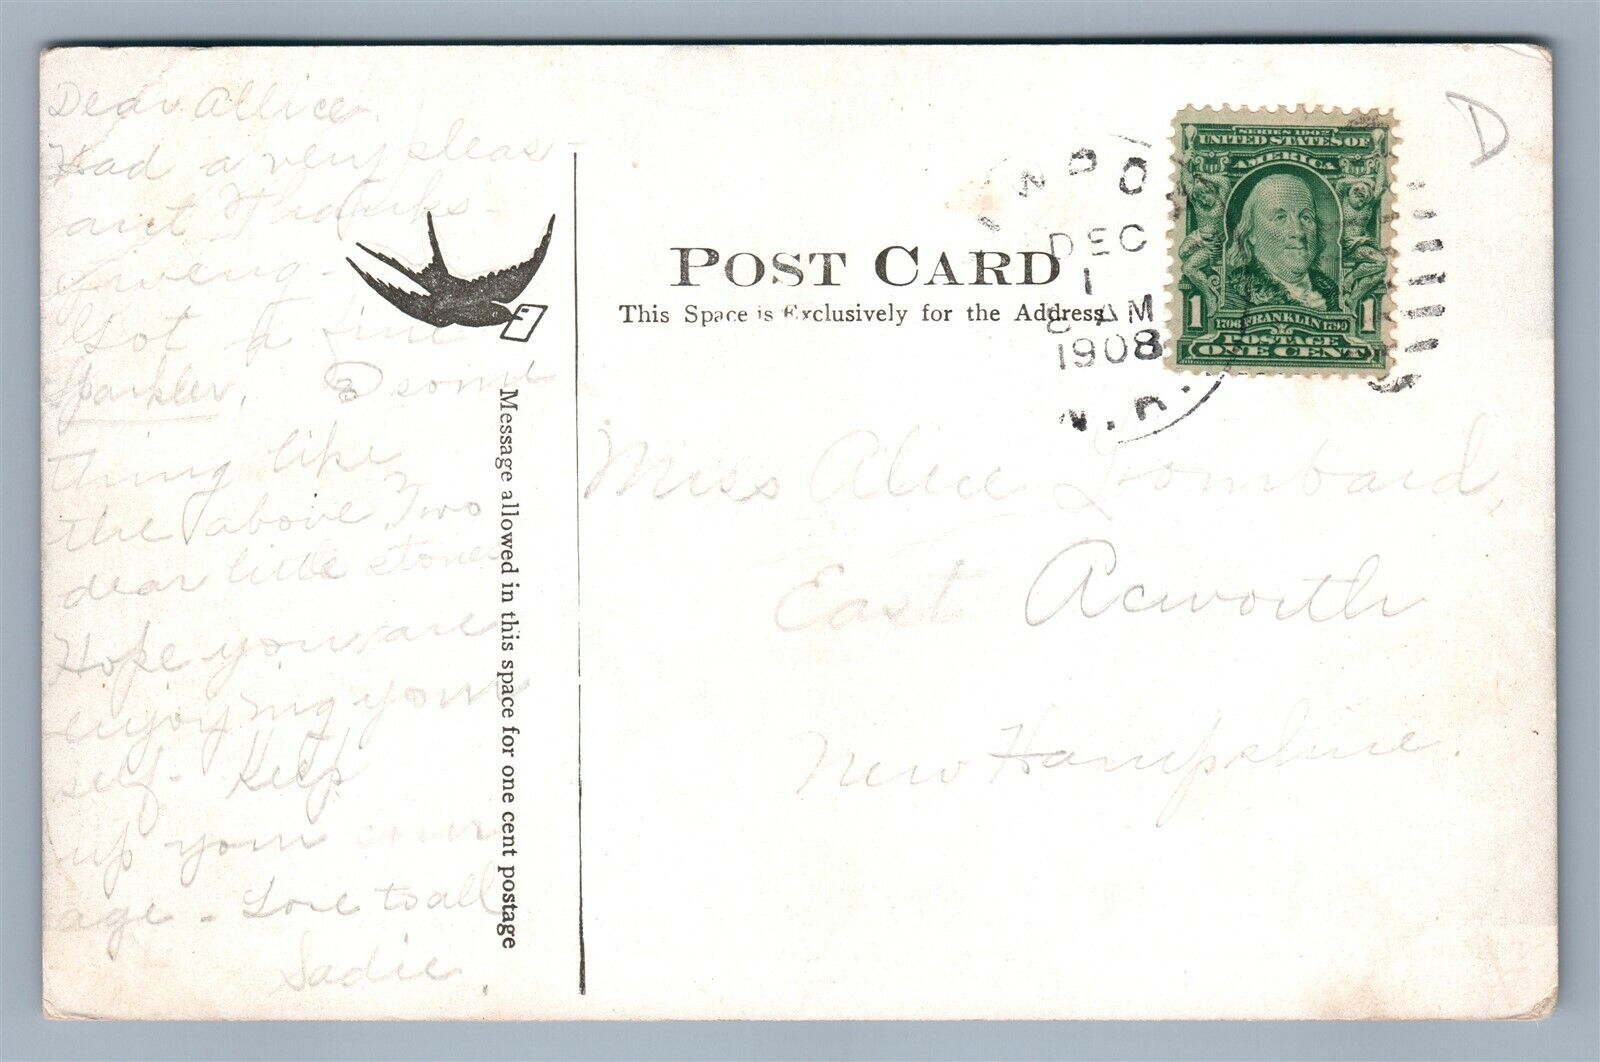 Dear Allice
Had a very pleas-
ant Thanks-
giveng -
Got a fine
Sparkler, some
thing like
the above Two
dear little stones
Hope you are
enjoying your
self - Keep
up your cour
age - Love to all
Sadie.
Message allowed in this space for one cent postage
POST CARD
This Space is Exclusively for the Address
DEC
1
AM
1908
N.H.
SERIES 1902
UNITED STATES OF
AMERICA
1 1
1706 FRANKLIN 1790
POSTAGE
ONE CENT
D
Miss Alice Lombard,
East Acworth
New Hampshire.